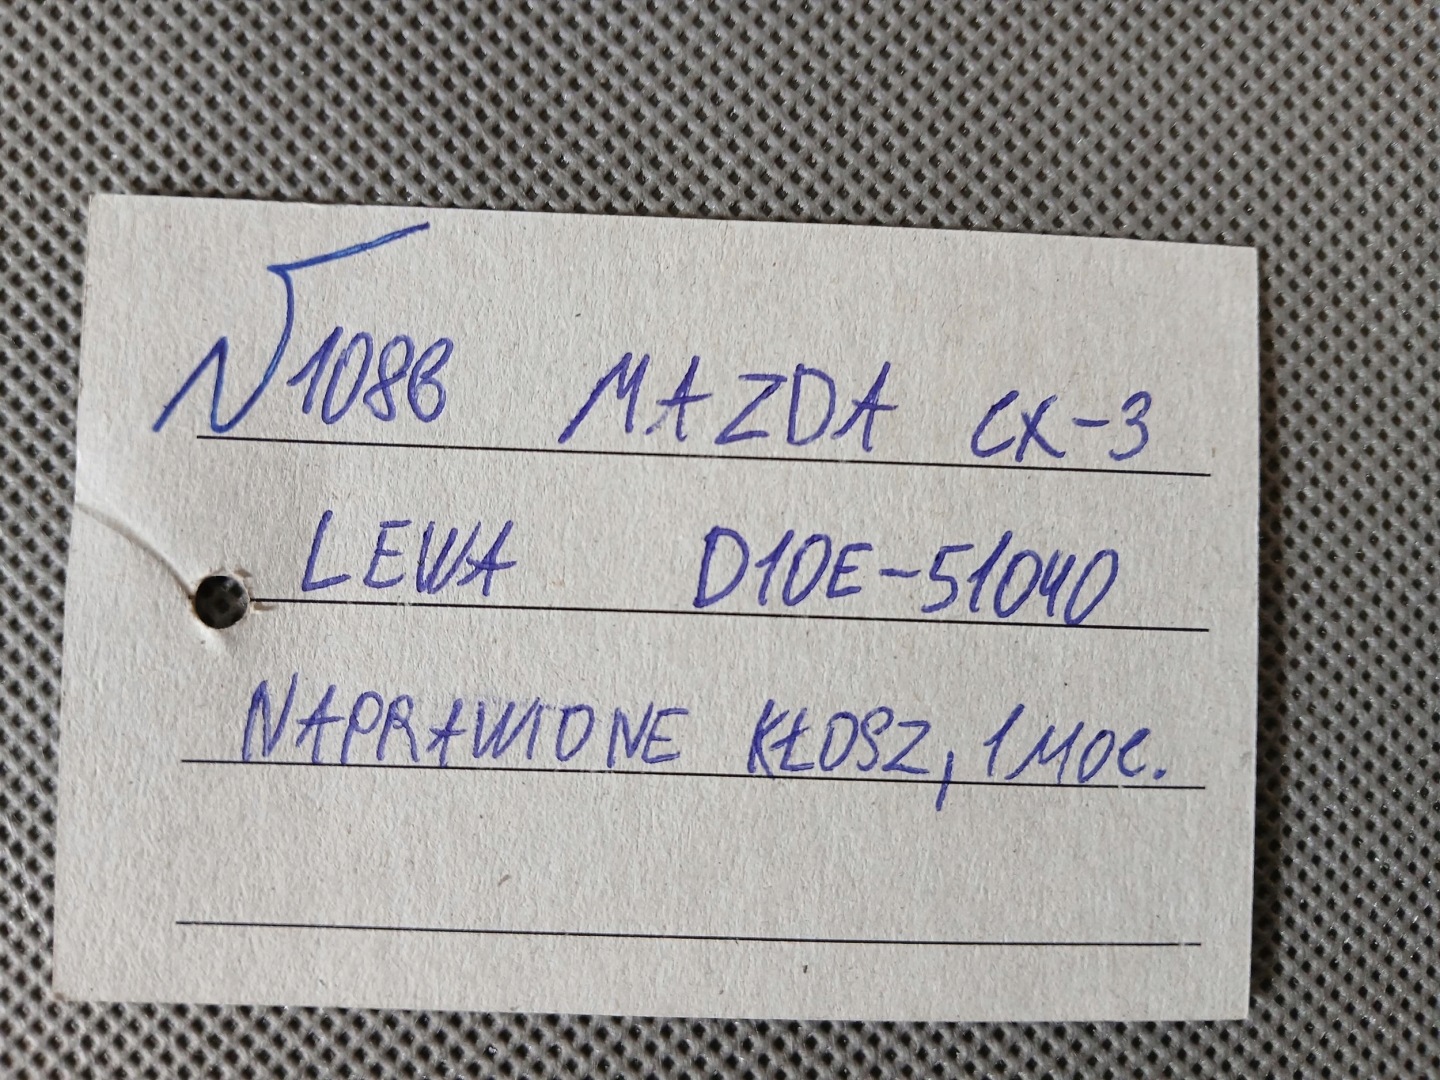 N1086 MAZDA CX-3
LEWA D10E-51040
NAPRAWIONE KŁOSZ, 1 MOC.